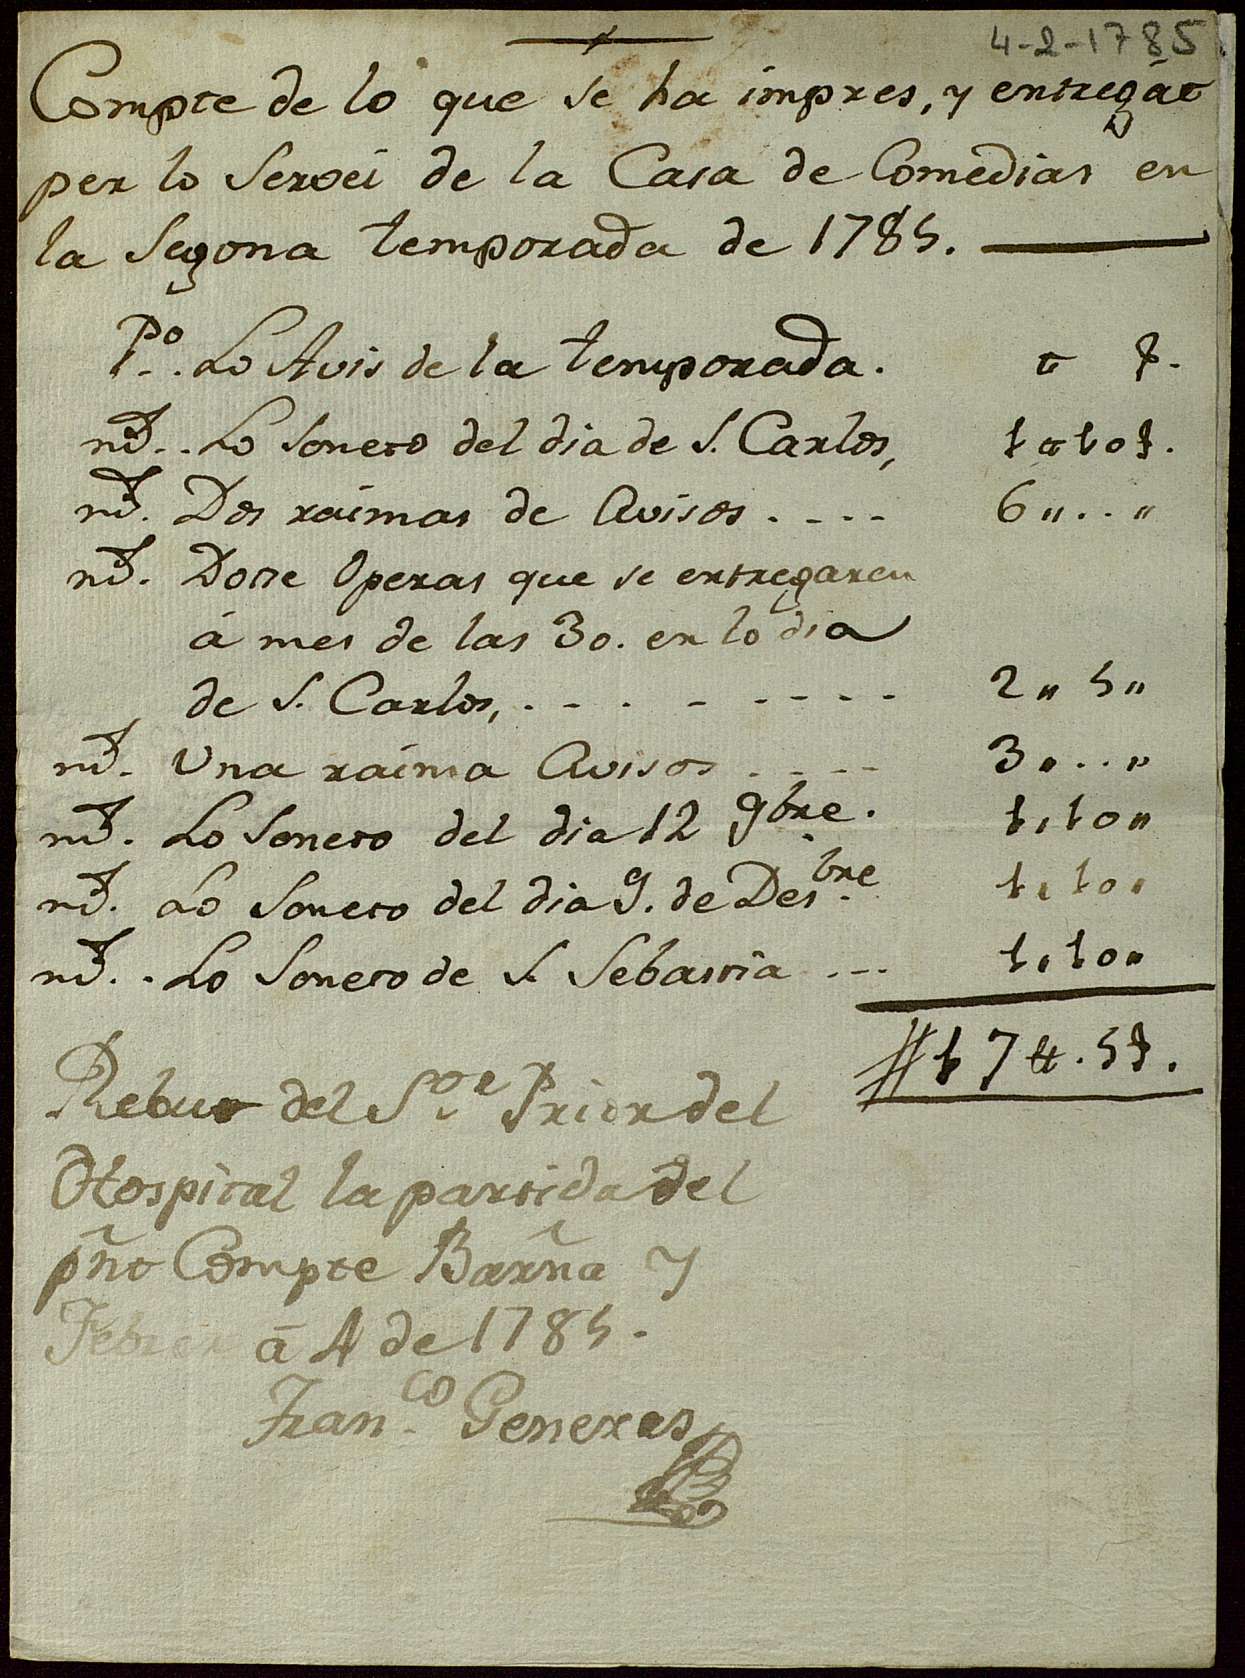 4-2-1785
Compte de lo que se ha impres, y entregat
per lo Servei de la Casa de Comedias en
la Segona temporada de 1785.
Po. Lo Avis de la temporada.
md. Lo Soneto del dia de S. Carlos, 1 10
md. Dos raimas de Avisos . - - - 6 " . . "
md. Dotze Operas que se entregaren
á mes de las 30. en lo dia
de S. Carlos, . - - . - - - - - 2 " 5 "
md. Una raima Avisos . - - - 3 " . . "
md. Lo Soneto del dia 12 9bre. 1 " 10 "
md. Lo Soneto del dia 9. de Desbre 1 " 10 "
md. Lo Soneto de S. Sebastia - - - 1 " 10 "
17 tt. 5 s.
Rebut del Sor Prior del
Hospital la partida del
pñt Compte Barña y
Febrer á 4 de 1785.
Franco Generas